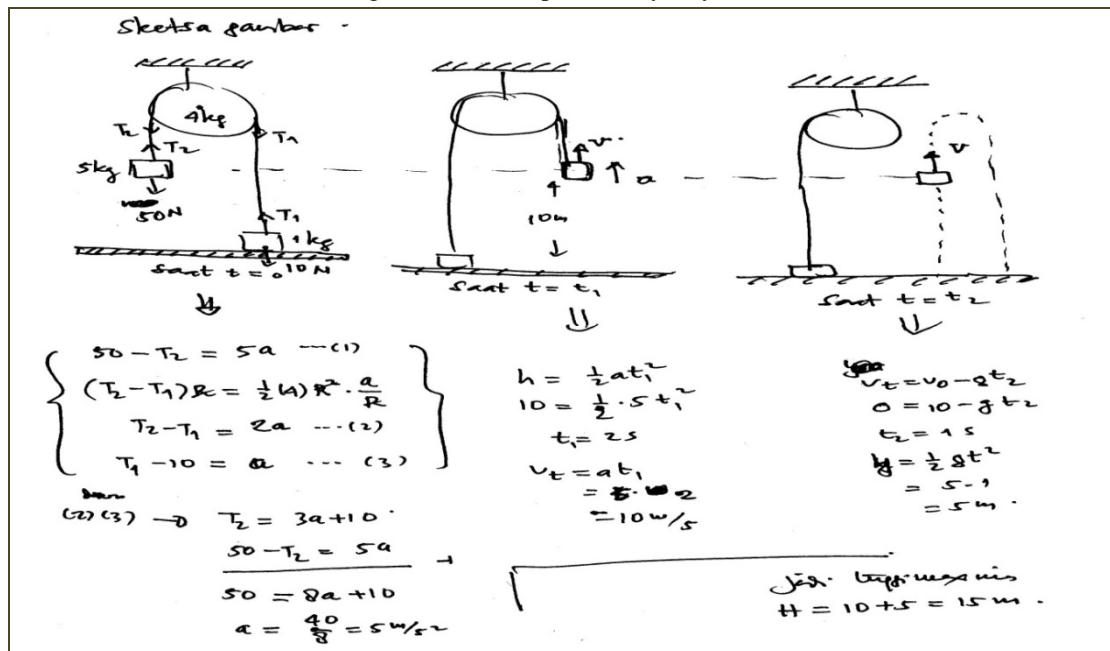 Sketsa gambar.
4kg
T2
T2
T1
5kg
50N
T1
1kg
10N
saat t = 0
v
a
10m
saat t = t1
v
saat t = t2
50 - T2 = 5a ---(1)
(T2 - T1)R = 1/2(4)R² · a/R
T2 - T1 = 2a ---(2)
T1 - 10 = a --- (3)
(2)(3) → T2 = 3a + 10
50 - T2 = 5a
+
50 = 8a + 10
a = 40/8 = 5 m/s²
h = 1/2 at1²
10 = 1/2 · 5 t1²
t1 = 2s
vt = at1
= 5 · 2
= 10 m/s
vt = v0 - gt2
0 = 10 - gt2
t2 = 1s
y = 1/2 gt²
= 5 · 1
= 5m.
Jadi tinggi maxnis
H = 10 + 5 = 15m.